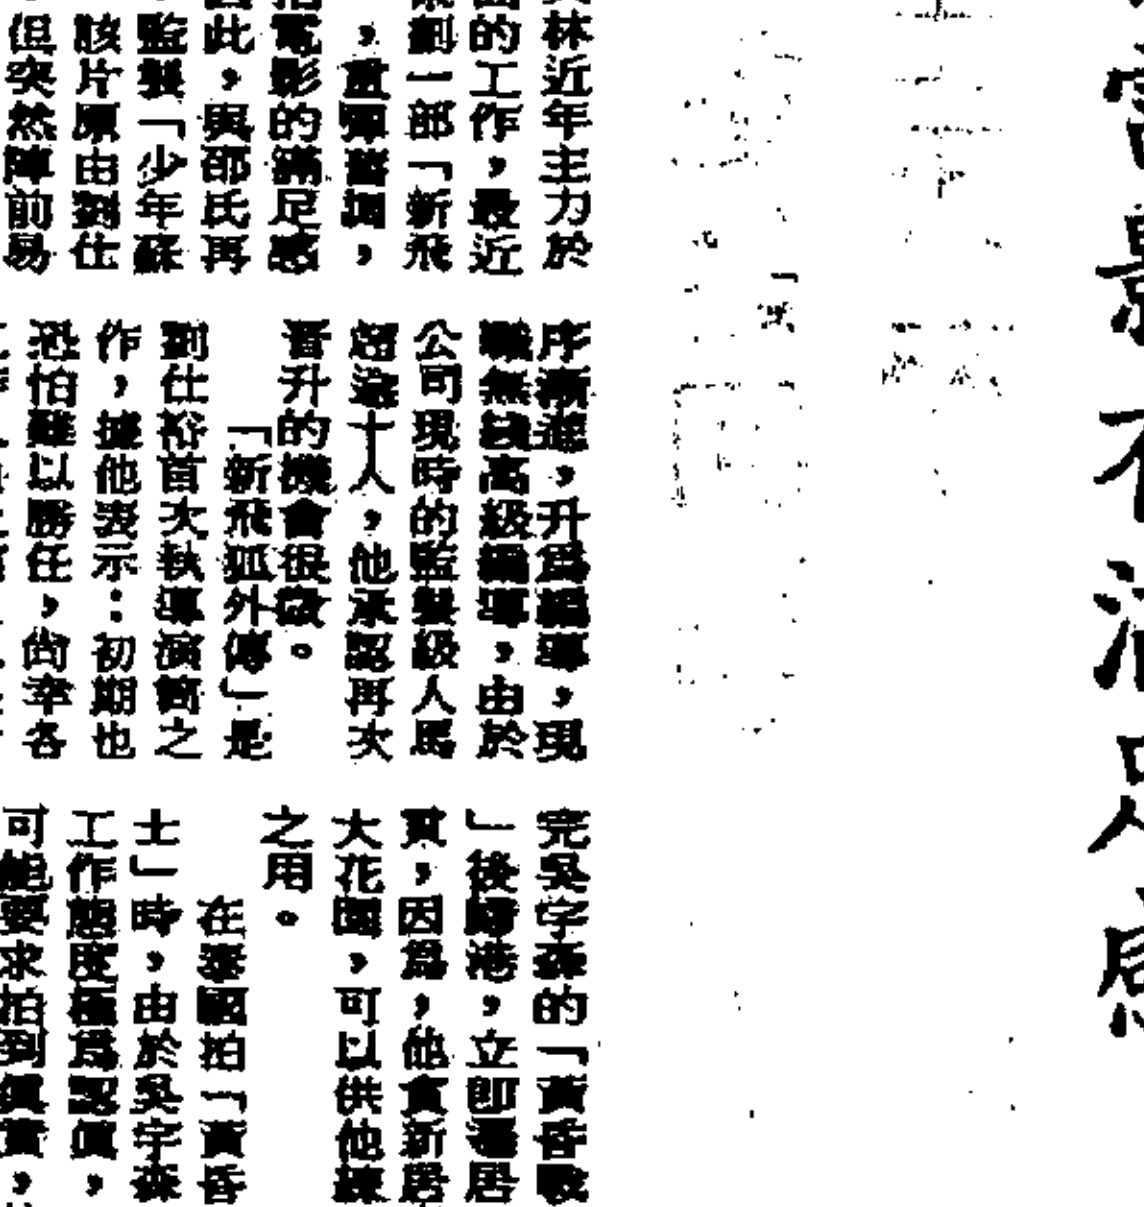 林近年主力於
的工作，最近
劃一部「新飛
，重彈舊調，
電影的滿足感
此，與邵氏再
監製「少年蘇
該片原由劉仕
但突然陣前易
序漸進，升爲編導，現
職無綫高級編導，由於
公司現時的監製級人馬
超逾十人，他承認再次
晉升的機會很微。
「新飛狐外傳」是
劉仕裕首次執導演筒之
作，據他表示：初期也
恐怕難以勝任，尙幸各
完吳宇森的「黃昏戰
」後歸港，立即遷居
，因爲，他新居
大花園，可以供他練
之用。
在泰國拍「黃昏
士」時，由於吳宇森
工作態度極爲認眞，
可能要求拍到眞實，